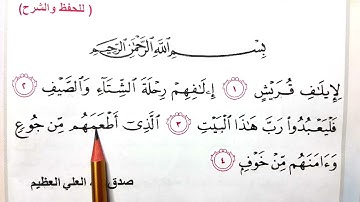 ( للحفظ والشرح )
بِسْمِ اللَّهِ الرَّحْمَٰنِ الرَّحِيمِ
لِإِيلَافِ قُرَيْشٍ ١ إِۦلَافِهِمْ رِحْلَةَ الشِّتَاءِ وَالصَّيْفِ ٢
فَلْيَعْبُدُوا رَبَّ هَٰذَا الْبَيْتِ ٣ الَّذِي أَطْعَمَهُم مِّن جُوعٍ
وَءَامَنَهُم مِّنْ خَوْفٍ ٤
صدق العلي العظيم